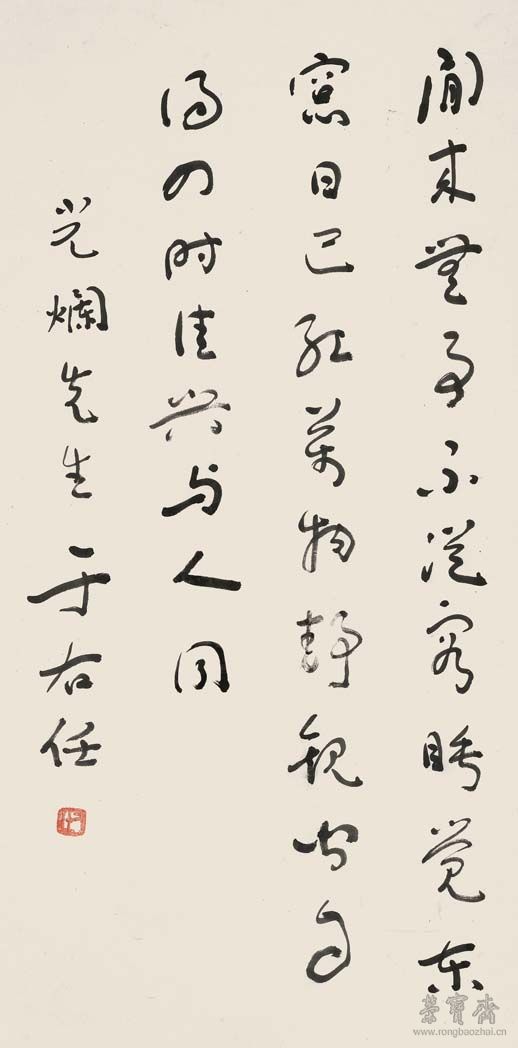 闲来无事不从容睡觉东
窗日已红万物静观皆自
得四时佳兴与人同
光烂先生 于右任
荣宝斋
www.rongbaozhai.cn